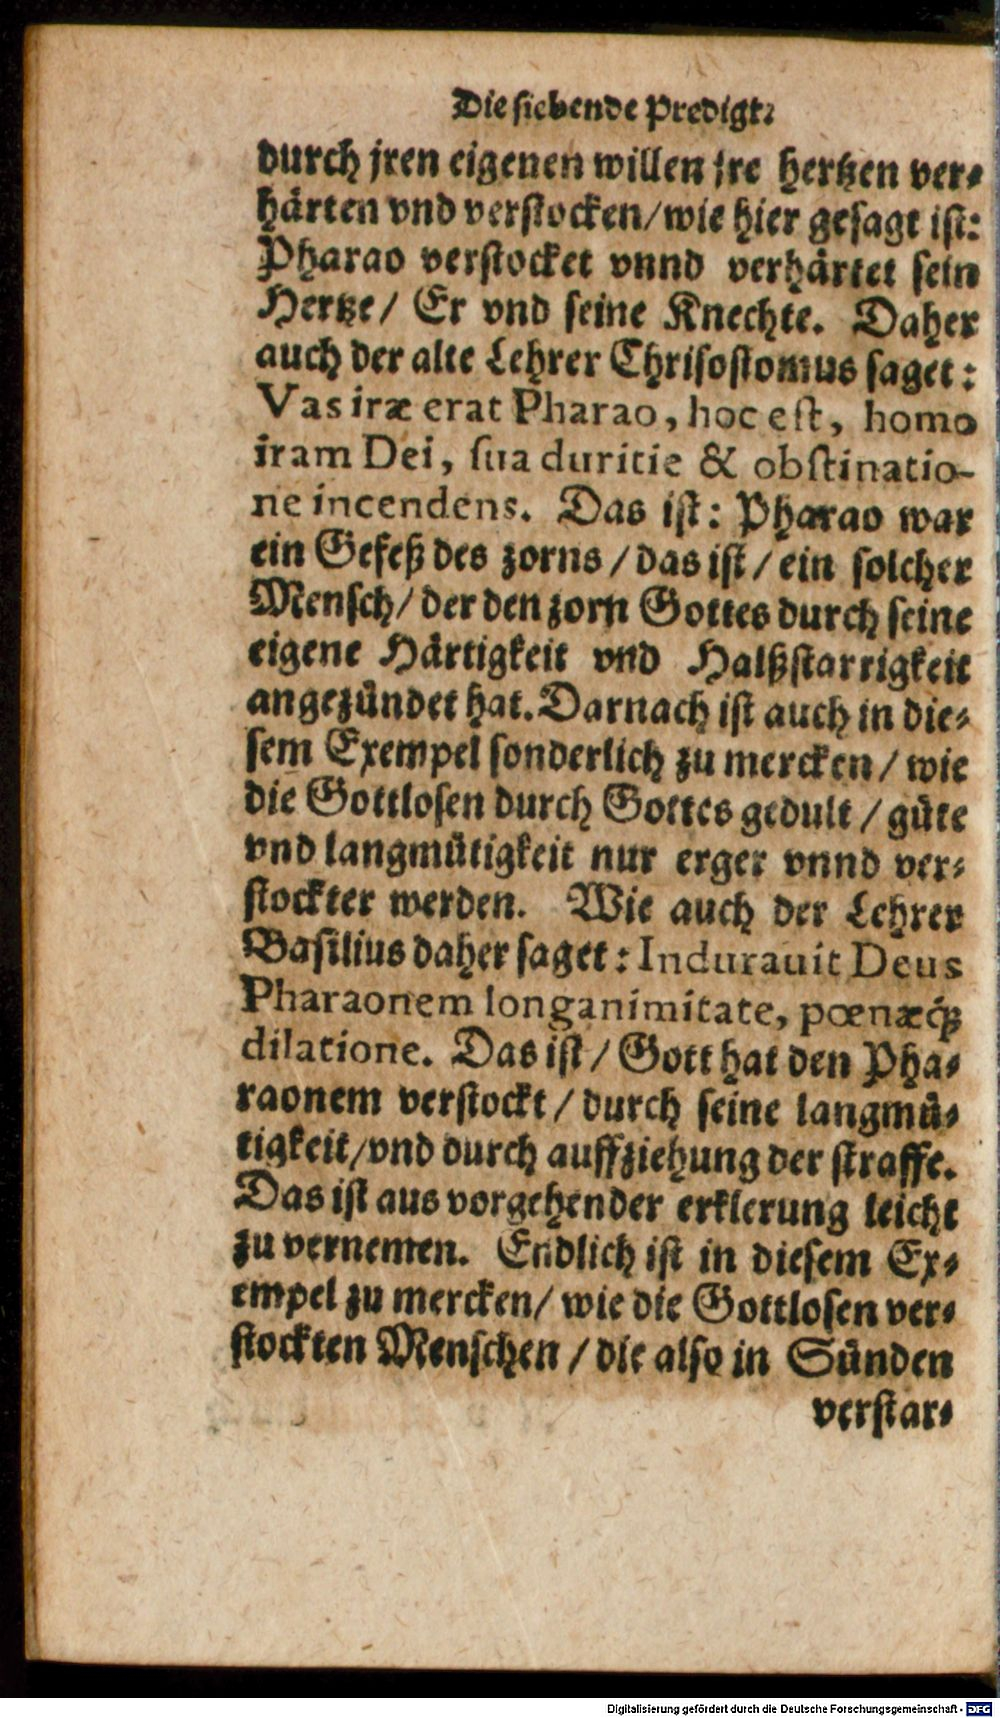 Die siebende Predigt.
durch jren eigenen willen jre hertzen ver⸗
härten vnd verstocken/ wie hier gesagt ist:
Pharao verstocket vnnd verhärtet sein
Hertze/ Er vnd seine Knechte. Daher
auch der alte Lehrer Chrisostomus saget:
Vas iræ erat Pharao, hoc est, homo
iram Dei, sua duritie & obstinatio-
ne incendens. Das ist: Pharao war
ein Gefeß des zorns / das ist / ein solcher
Mensch/ der den zorn Gottes durch seine
eigene Härtigkeit vnd Halßstarrigkeit
angezündet hat. Darnach ist auch in die⸗
sem Exempel sonderlich zu mercken / wie
die Gottlosen durch Gottes gedult / güte
vnd langmütigkeit nur erger vnnd ver⸗
stockter werden. Wie auch der Lehrer
Basilius daher saget: Indurauit Deus
Pharaonem longanimitate, pœnæq́;
dilatione. Das ist / Gott hat den Pha⸗
raonem verstockt / durch seine langmü⸗
tigkeit/vnd durch auffziehung der straffe.
Das ist aus vorgehender erklerung leicht
zu vernemen. Endlich ist in diesem Ex⸗
empel zu mercken/ wie die Gottlosen ver⸗
stockten Menschen / die also in Sünden
verstar⸗
Digitalisierung gefördert durch die Deutsche Forschungsgemeinschaft - DFG